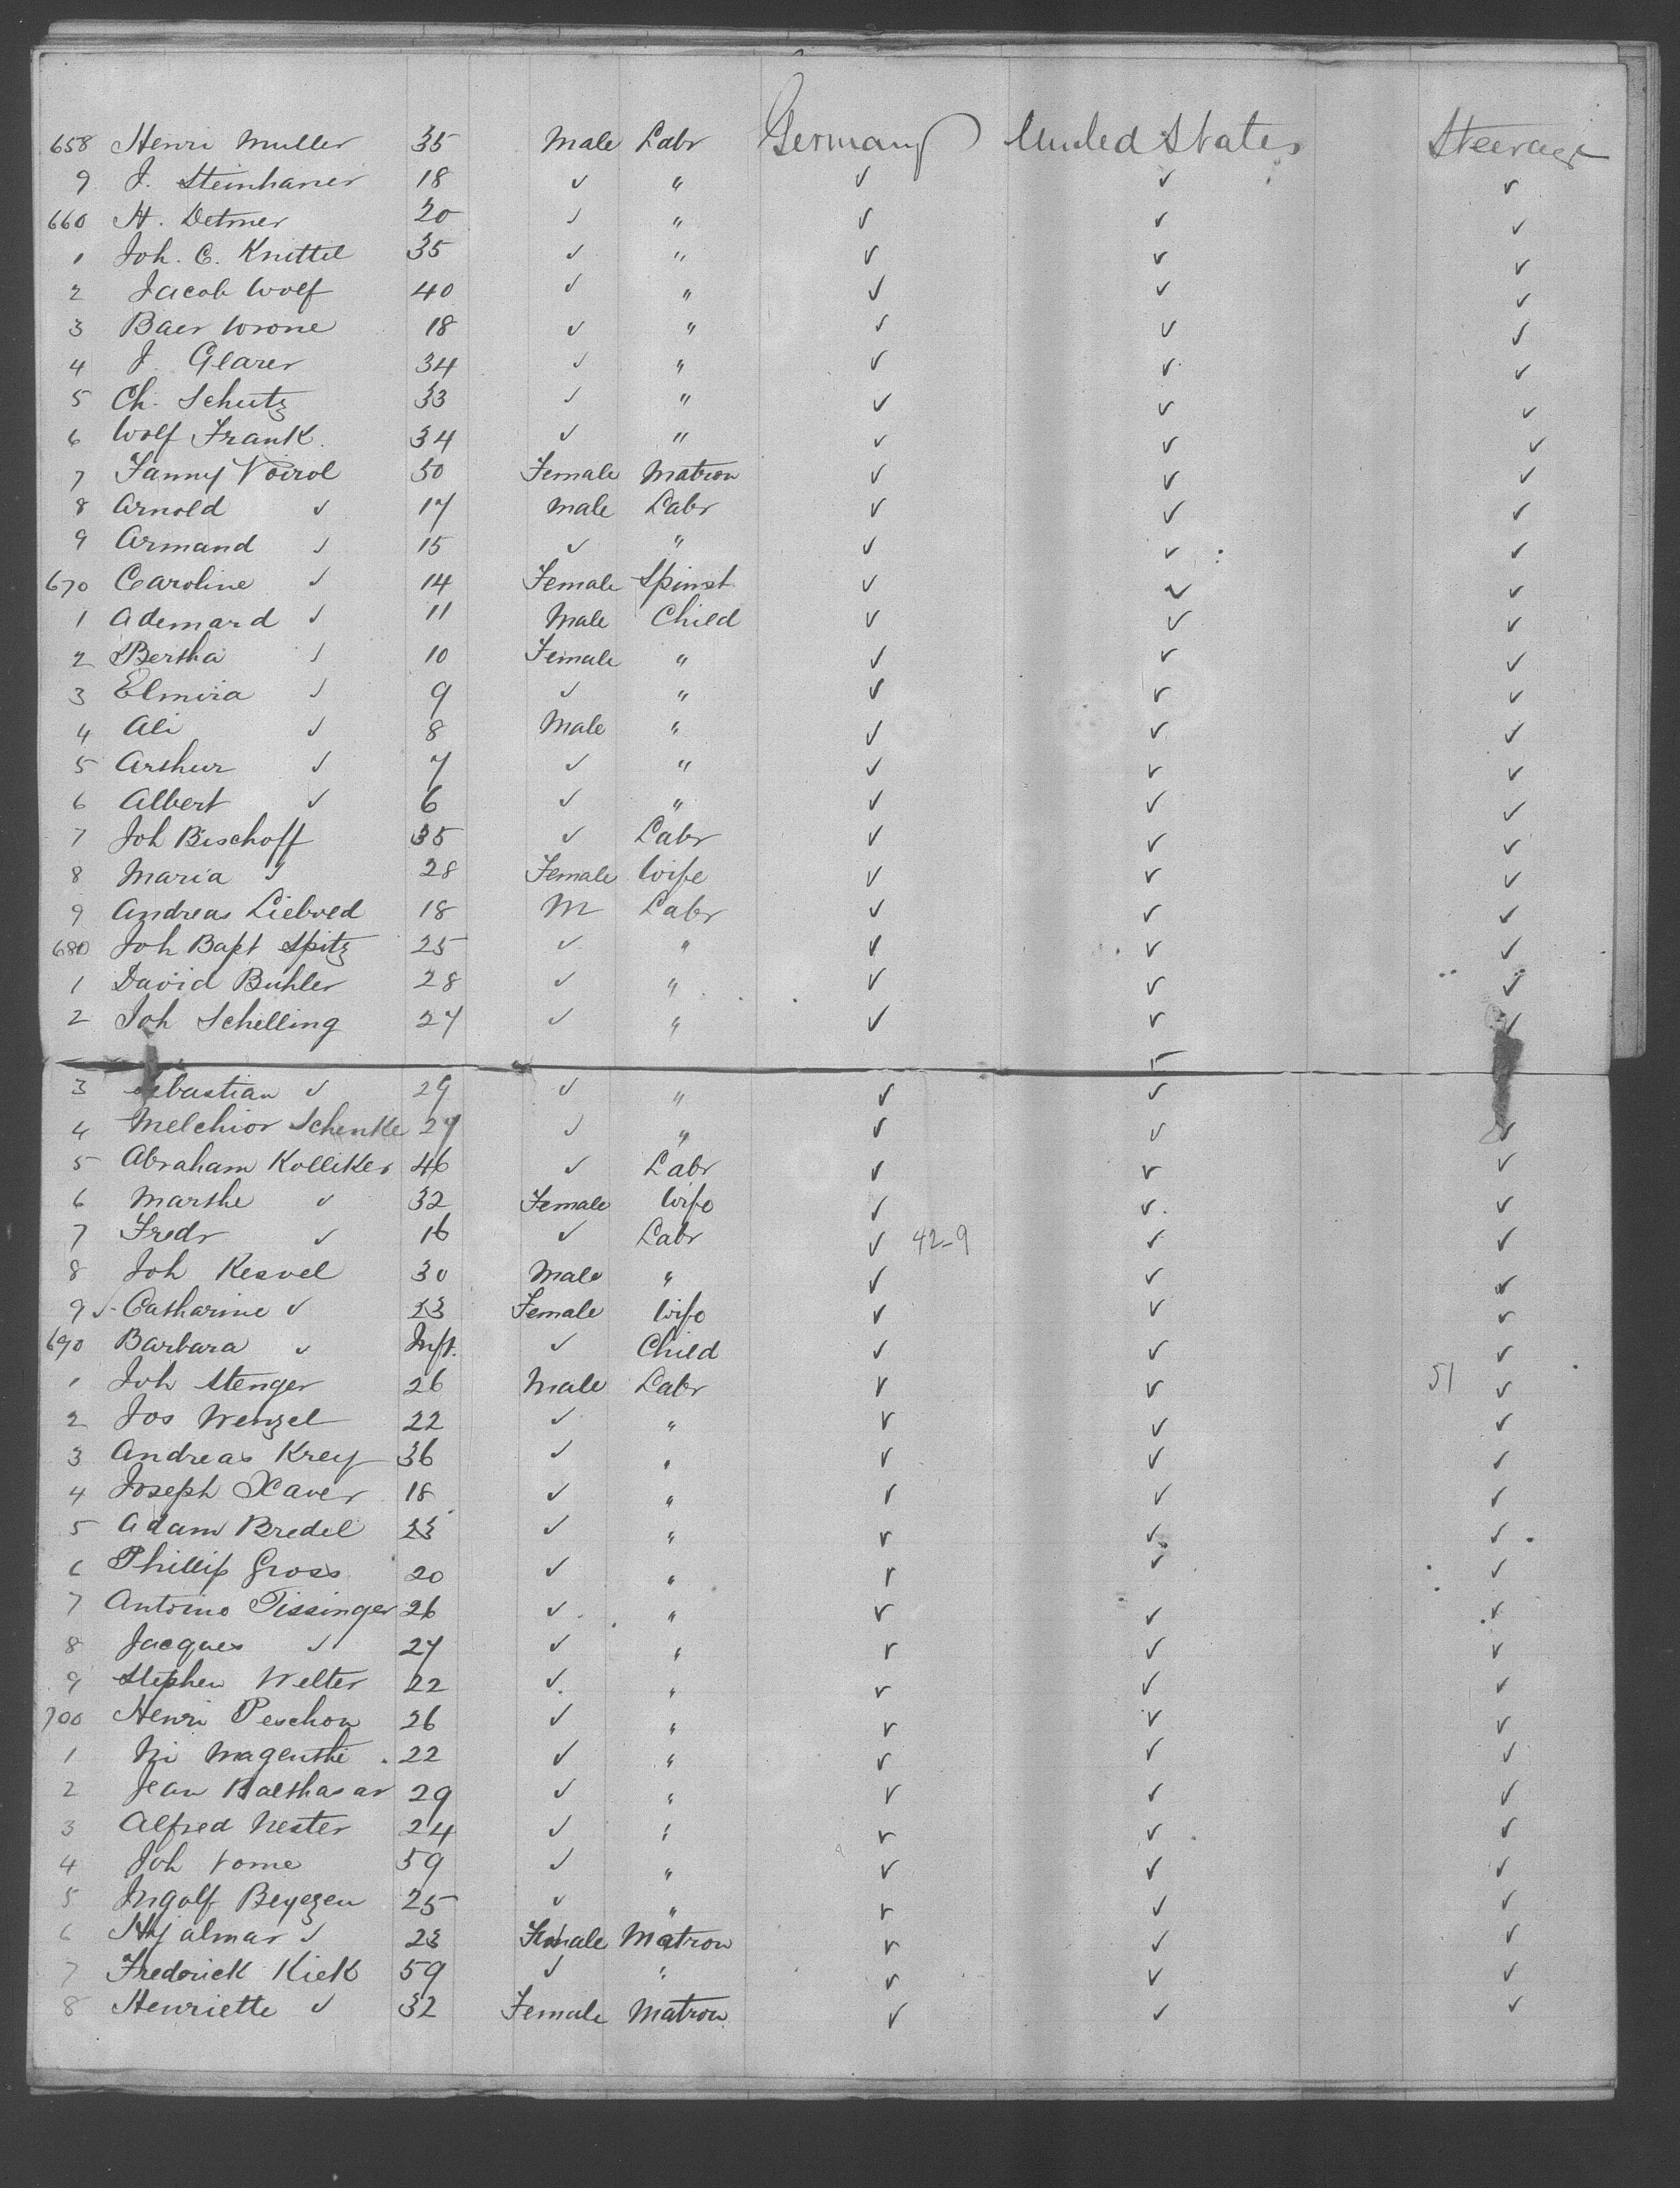 658 Henri Muller 35 Male Labr Germany United States Steerage
9 J. Steinhauer 18 ✓ " ✓ ✓ ✓
660 H. Detmer 20 ✓ " ✓ ✓ ✓
1 Joh. C. Knittel 35 ✓ " ✓ ✓ ✓
2 Jacob Wolf 40 ✓ " ✓ ✓ ✓
3 Baer Wrone 18 ✓ " ✓ ✓ ✓
4 J. Glarer 34 ✓ " ✓ ✓ ✓
5 Ch. Schutz 33 ✓ " ✓ ✓ ✓
6 Wolf Frank 34 ✓ " ✓ ✓ ✓
7 Fanny Voirol 50 Female Matron ✓ ✓ ✓
8 Arnold ✓ 17 Male Labr ✓ ✓ ✓
9 Armand ✓ 15 ✓ " ✓ ✓ ✓
670 Caroline ✓ 14 Female Spinst ✓ ✓ ✓
1 Ademard ✓ 11 Male Child ✓ ✓ ✓
2 Bertha ✓ 10 Female " ✓ ✓ ✓
3 Elmira ✓ 9 ✓ " ✓ ✓ ✓
4 Ali ✓ 8 Male " ✓ ✓ ✓
5 Arthur ✓ 7 ✓ " ✓ ✓ ✓
6 Albert ✓ 6 ✓ " ✓ ✓ ✓
7 Joh Bischoff 35 ✓ Labr ✓ ✓ ✓
8 Maria ✓ 28 Female Wife ✓ ✓ ✓
9 Andreas Liebold 18 M Labr ✓ ✓ ✓
680 Joh Bapt Spitz 25 ✓ " ✓ ✓ ✓
1 David Buhler 28 ✓ " ✓ ✓ ✓
2 Joh Schelling 27 ✓ " ✓ ✓ ✓
3 Sebastian ✓ 29 ✓ " ✓ ✓
4 Melchior Schenke 27 ✓ " ✓ ✓ ✓
5 Abraham Kolliker 46 ✓ Labr ✓ ✓ ✓
6 Marthe ✓ 32 Female Wife ✓ ✓ ✓
7 Fredr ✓ 16 ✓ Labr ✓ 42-9 ✓ ✓
8 Joh Kesvel 30 Male " ✓ ✓ ✓
9 ✓ Catharine ✓ 23 Female Wife ✓ ✓ ✓
690 Barbara ✓ Inft. ✓ Child ✓ ✓ ✓
1 Joh Stenger 26 Male Labr ✓ ✓ 51 ✓
2 Jos Wenzel 22 ✓ " ✓ ✓ ✓
3 Andreas Krey 36 ✓ " ✓ ✓ ✓
4 Joseph Xaver 18 ✓ " ✓ ✓ ✓
5 Adam Bredel 23 ✓ " ✓ ✓ ✓
6 Phillip Gross 20 ✓ " ✓ ✓ ✓
7 Antoine Tissinger 26 ✓ " ✓ ✓ ✓
8 Jacques ✓ 27 ✓ " ✓ ✓ ✓
9 Stephen Welter 22 ✓ " ✓ ✓ ✓
700 Henri Peschon 26 ✓ " ✓ ✓ ✓
1 Ni Magenthe 22 ✓ " ✓ ✓ ✓
2 Jean Balthasar 29 ✓ " ✓ ✓ ✓
3 Alfred Nester 24 ✓ " ✓ ✓ ✓
4 Joh Vome 59 ✓ " ✓ ✓ ✓
5 Ingolf Beyezen 25 ✓ " ✓ ✓ ✓
6 Hjalmar ✓ 23 Female Matron ✓ ✓ ✓
7 Frederick Kiek 59 ✓ " ✓ ✓ ✓
8 Henriette ✓ 32 Female Matron ✓ ✓ ✓